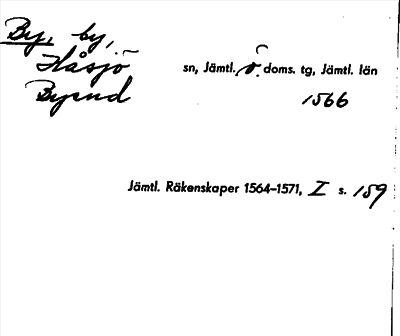 By, by,
Håsjö sn, Jämtl. ö. doms. tg, Jämtl. län
Byend 1566
Jämtl. Räkenskaper 1564–1571, I s. 159